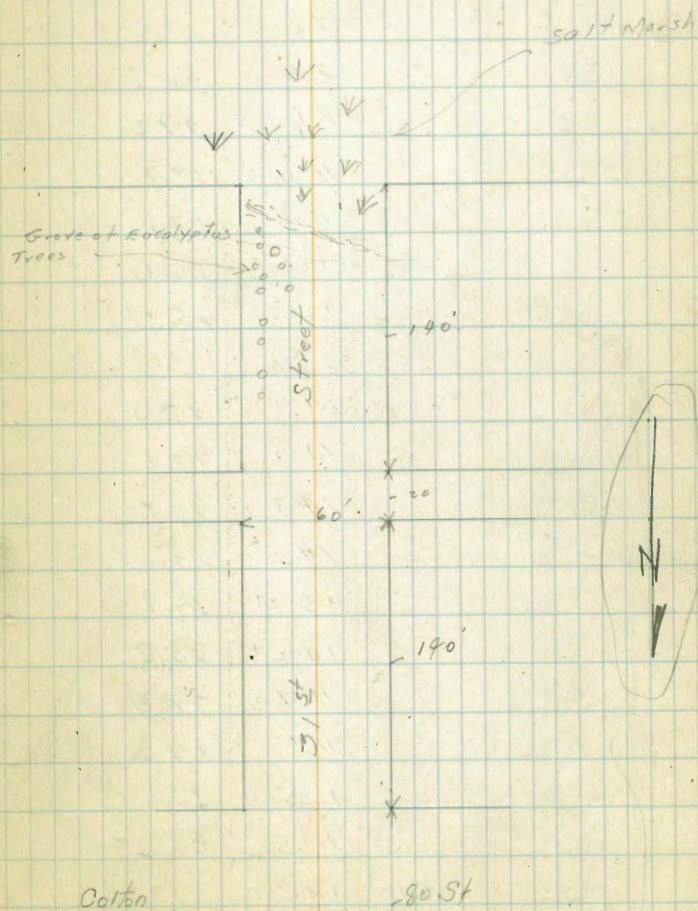 Salt Marsh
Grove of Eucalyptus
Trees
Street
140'
20
60'
140'
31 St
N
Colton
80 St